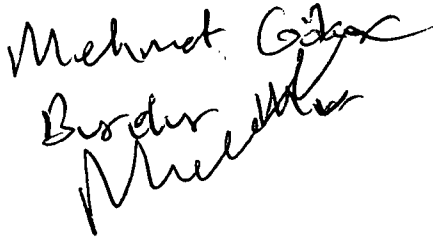 Mehmet Göker
Burdur